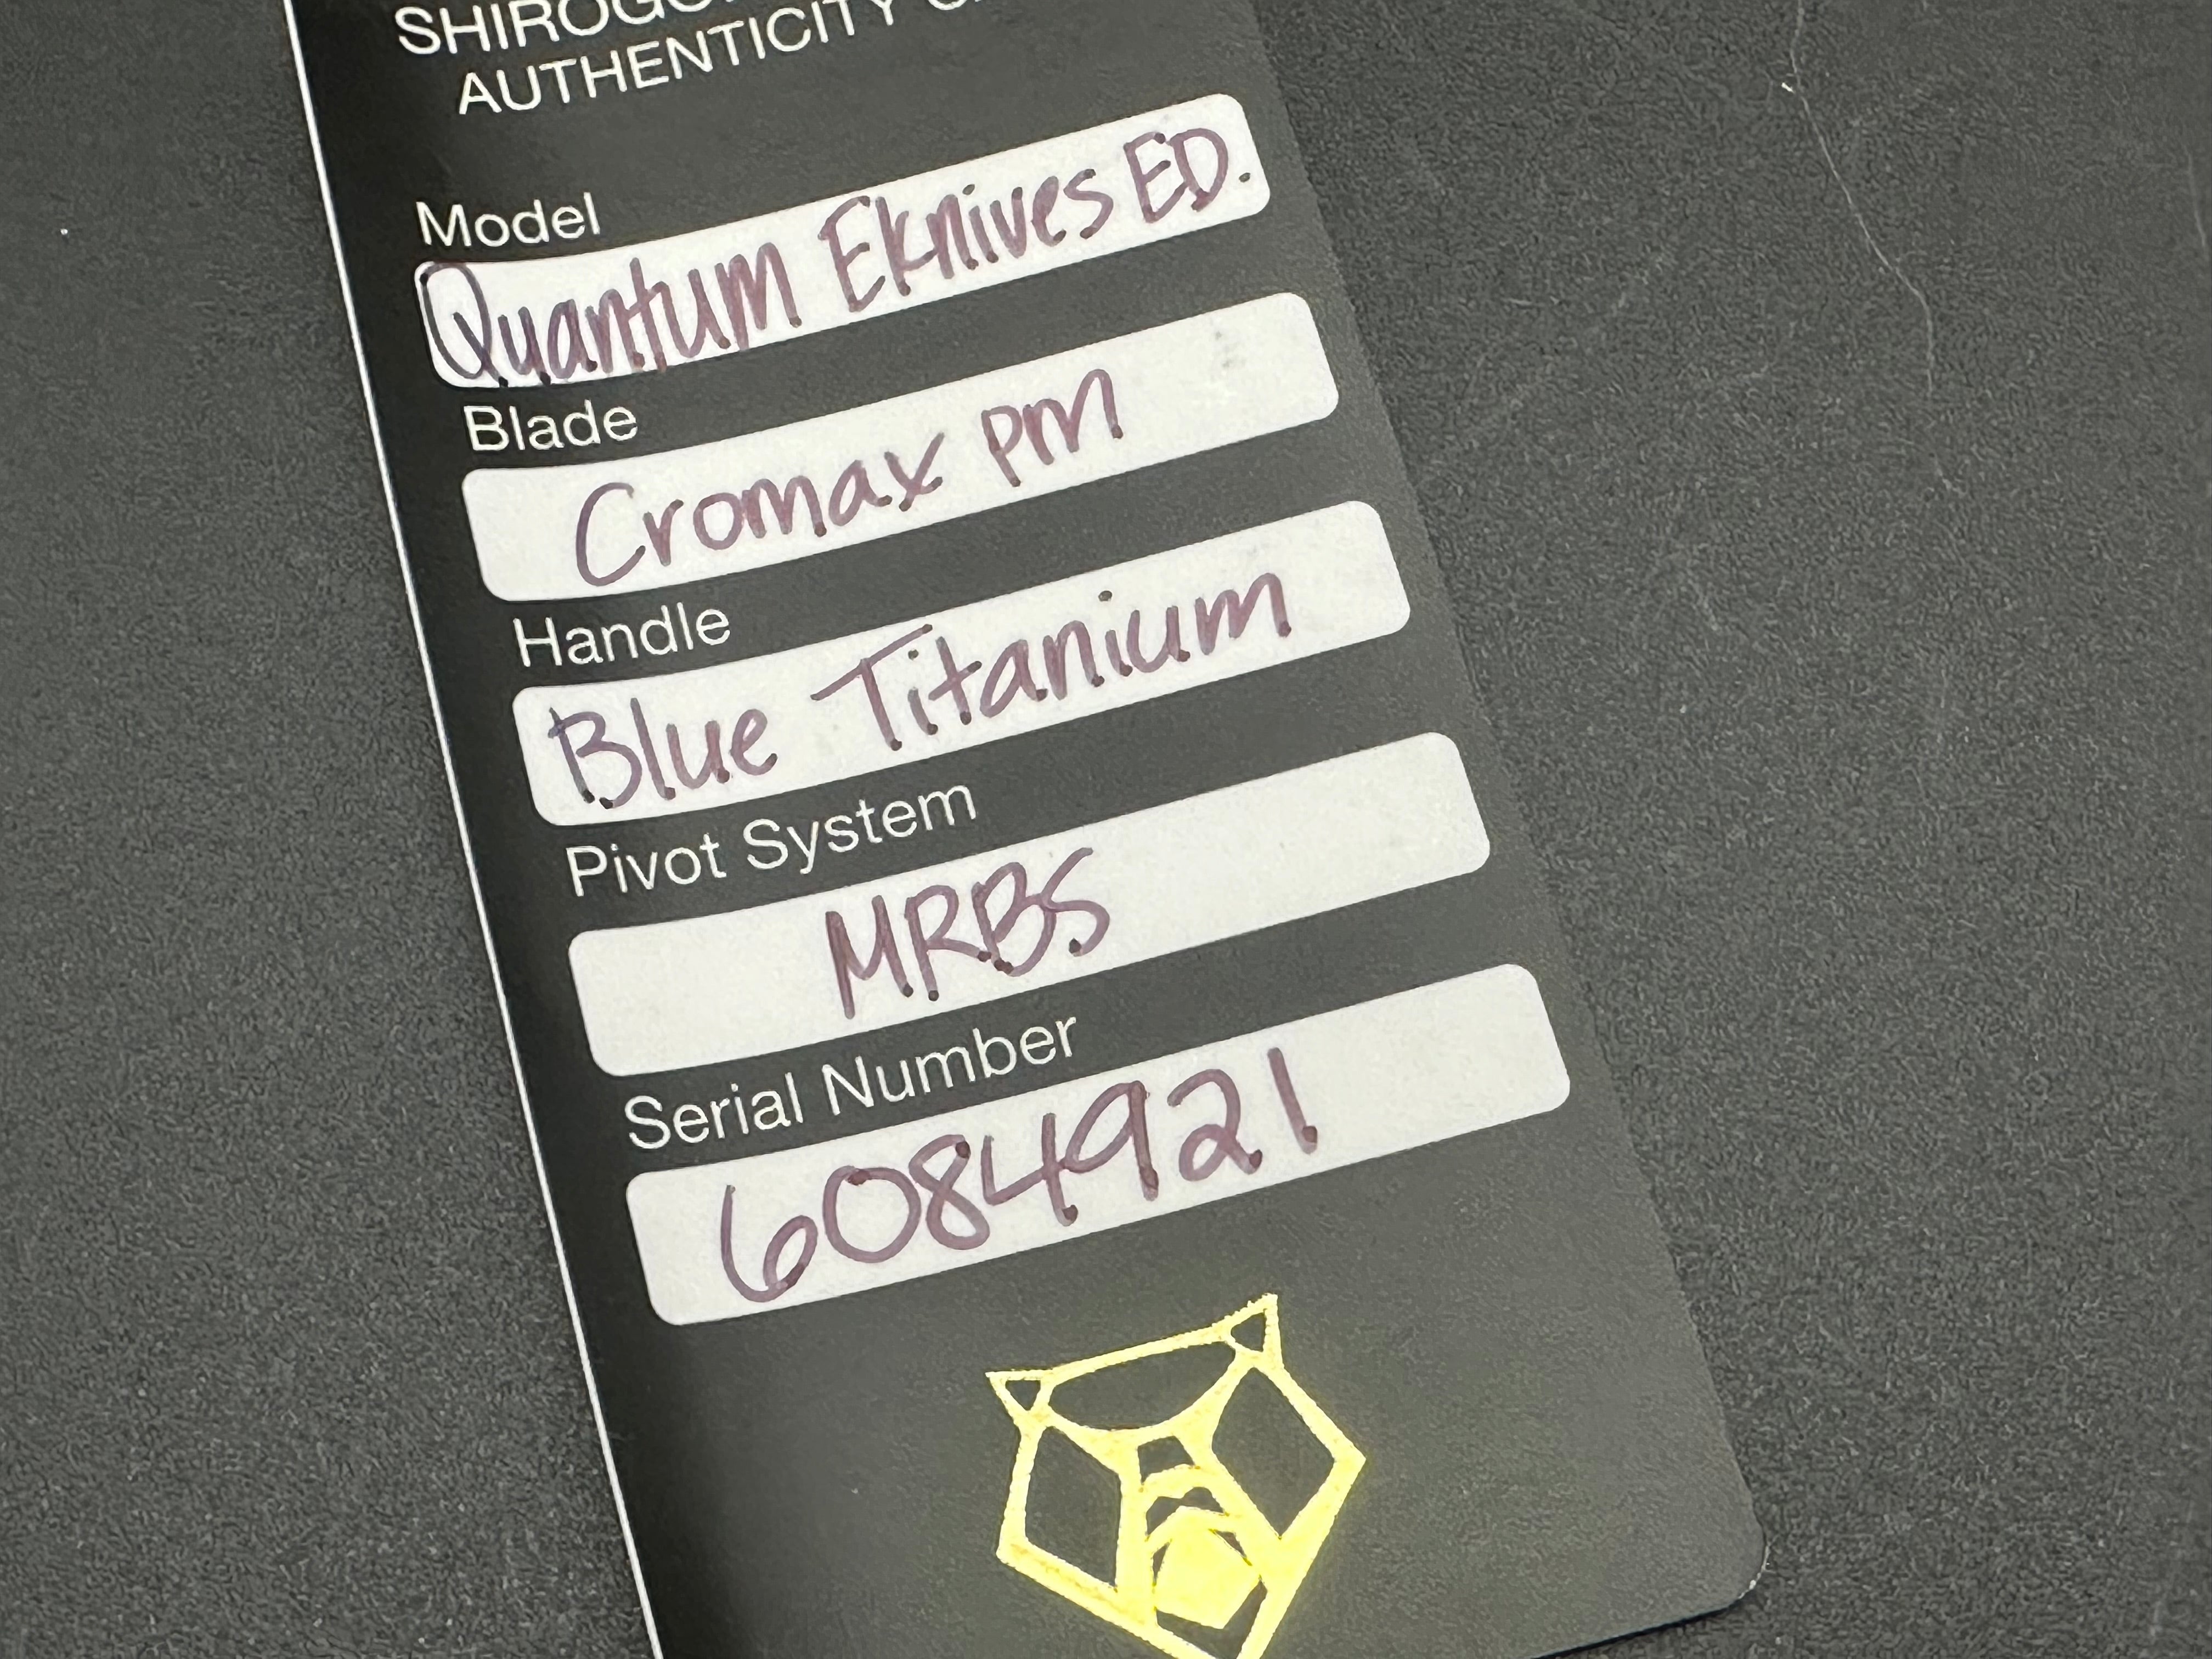 AUTHENTICITY
Model
Quantum Eknives ED.
Blade
Cromax pm
Handle
Blue Titanium
Pivot System
MRBS
Serial Number
6084921